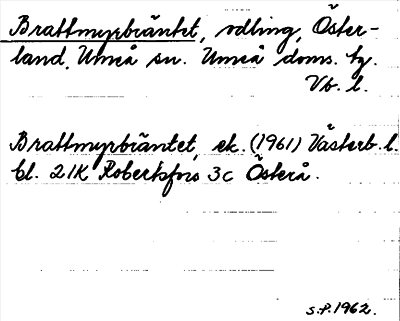 Brattmyrbräntet, odling, Öster-
land, Umeå sn. Umeå doms. tg.
Vb. l.
Brattmyrbräntet, ek. (1961) Västerb. l.
bl. 21K Robertsfors 3c Österå.
S.P. 1962.